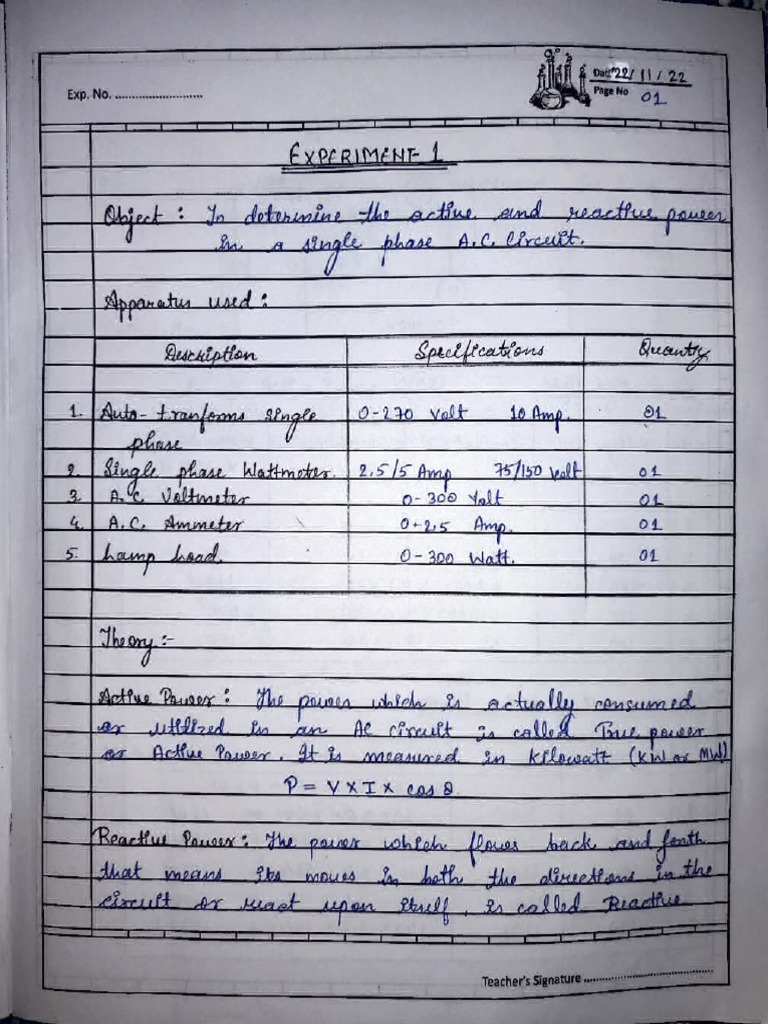 Exp. No. ..........................
Date 22/11/22
Page No 01
EXPERIMENT-1
Object : To determine the active and reactive power
in a single phase A.C. Circuit.
Apparatus used :
Description Specifications Quantity
1. Auto-tranforms single 0-270 Volt 10 Amp. 01
phase
2. Single phase Wattmeter. 2.5/5 Amp 75/150 volt 01
3. A.C. Voltmeter 0-300 Volt 01
4. A.C. Ammeter 0-2.5 Amp. 01
5. Lamp Load. 0-300 Watt. 01
Theory :-
Active Power : The power which is actually consumed
or utilized in an AC circuit is called True power
or Active Power. It is measured in kilowatt (KW or MW)
P = V X I X cos θ
Reactive Power : The power which flows back and forth
that means its moves in both the directions in the
circuit or react upon itself, is called Reactive
Teacher's Signature ..................................